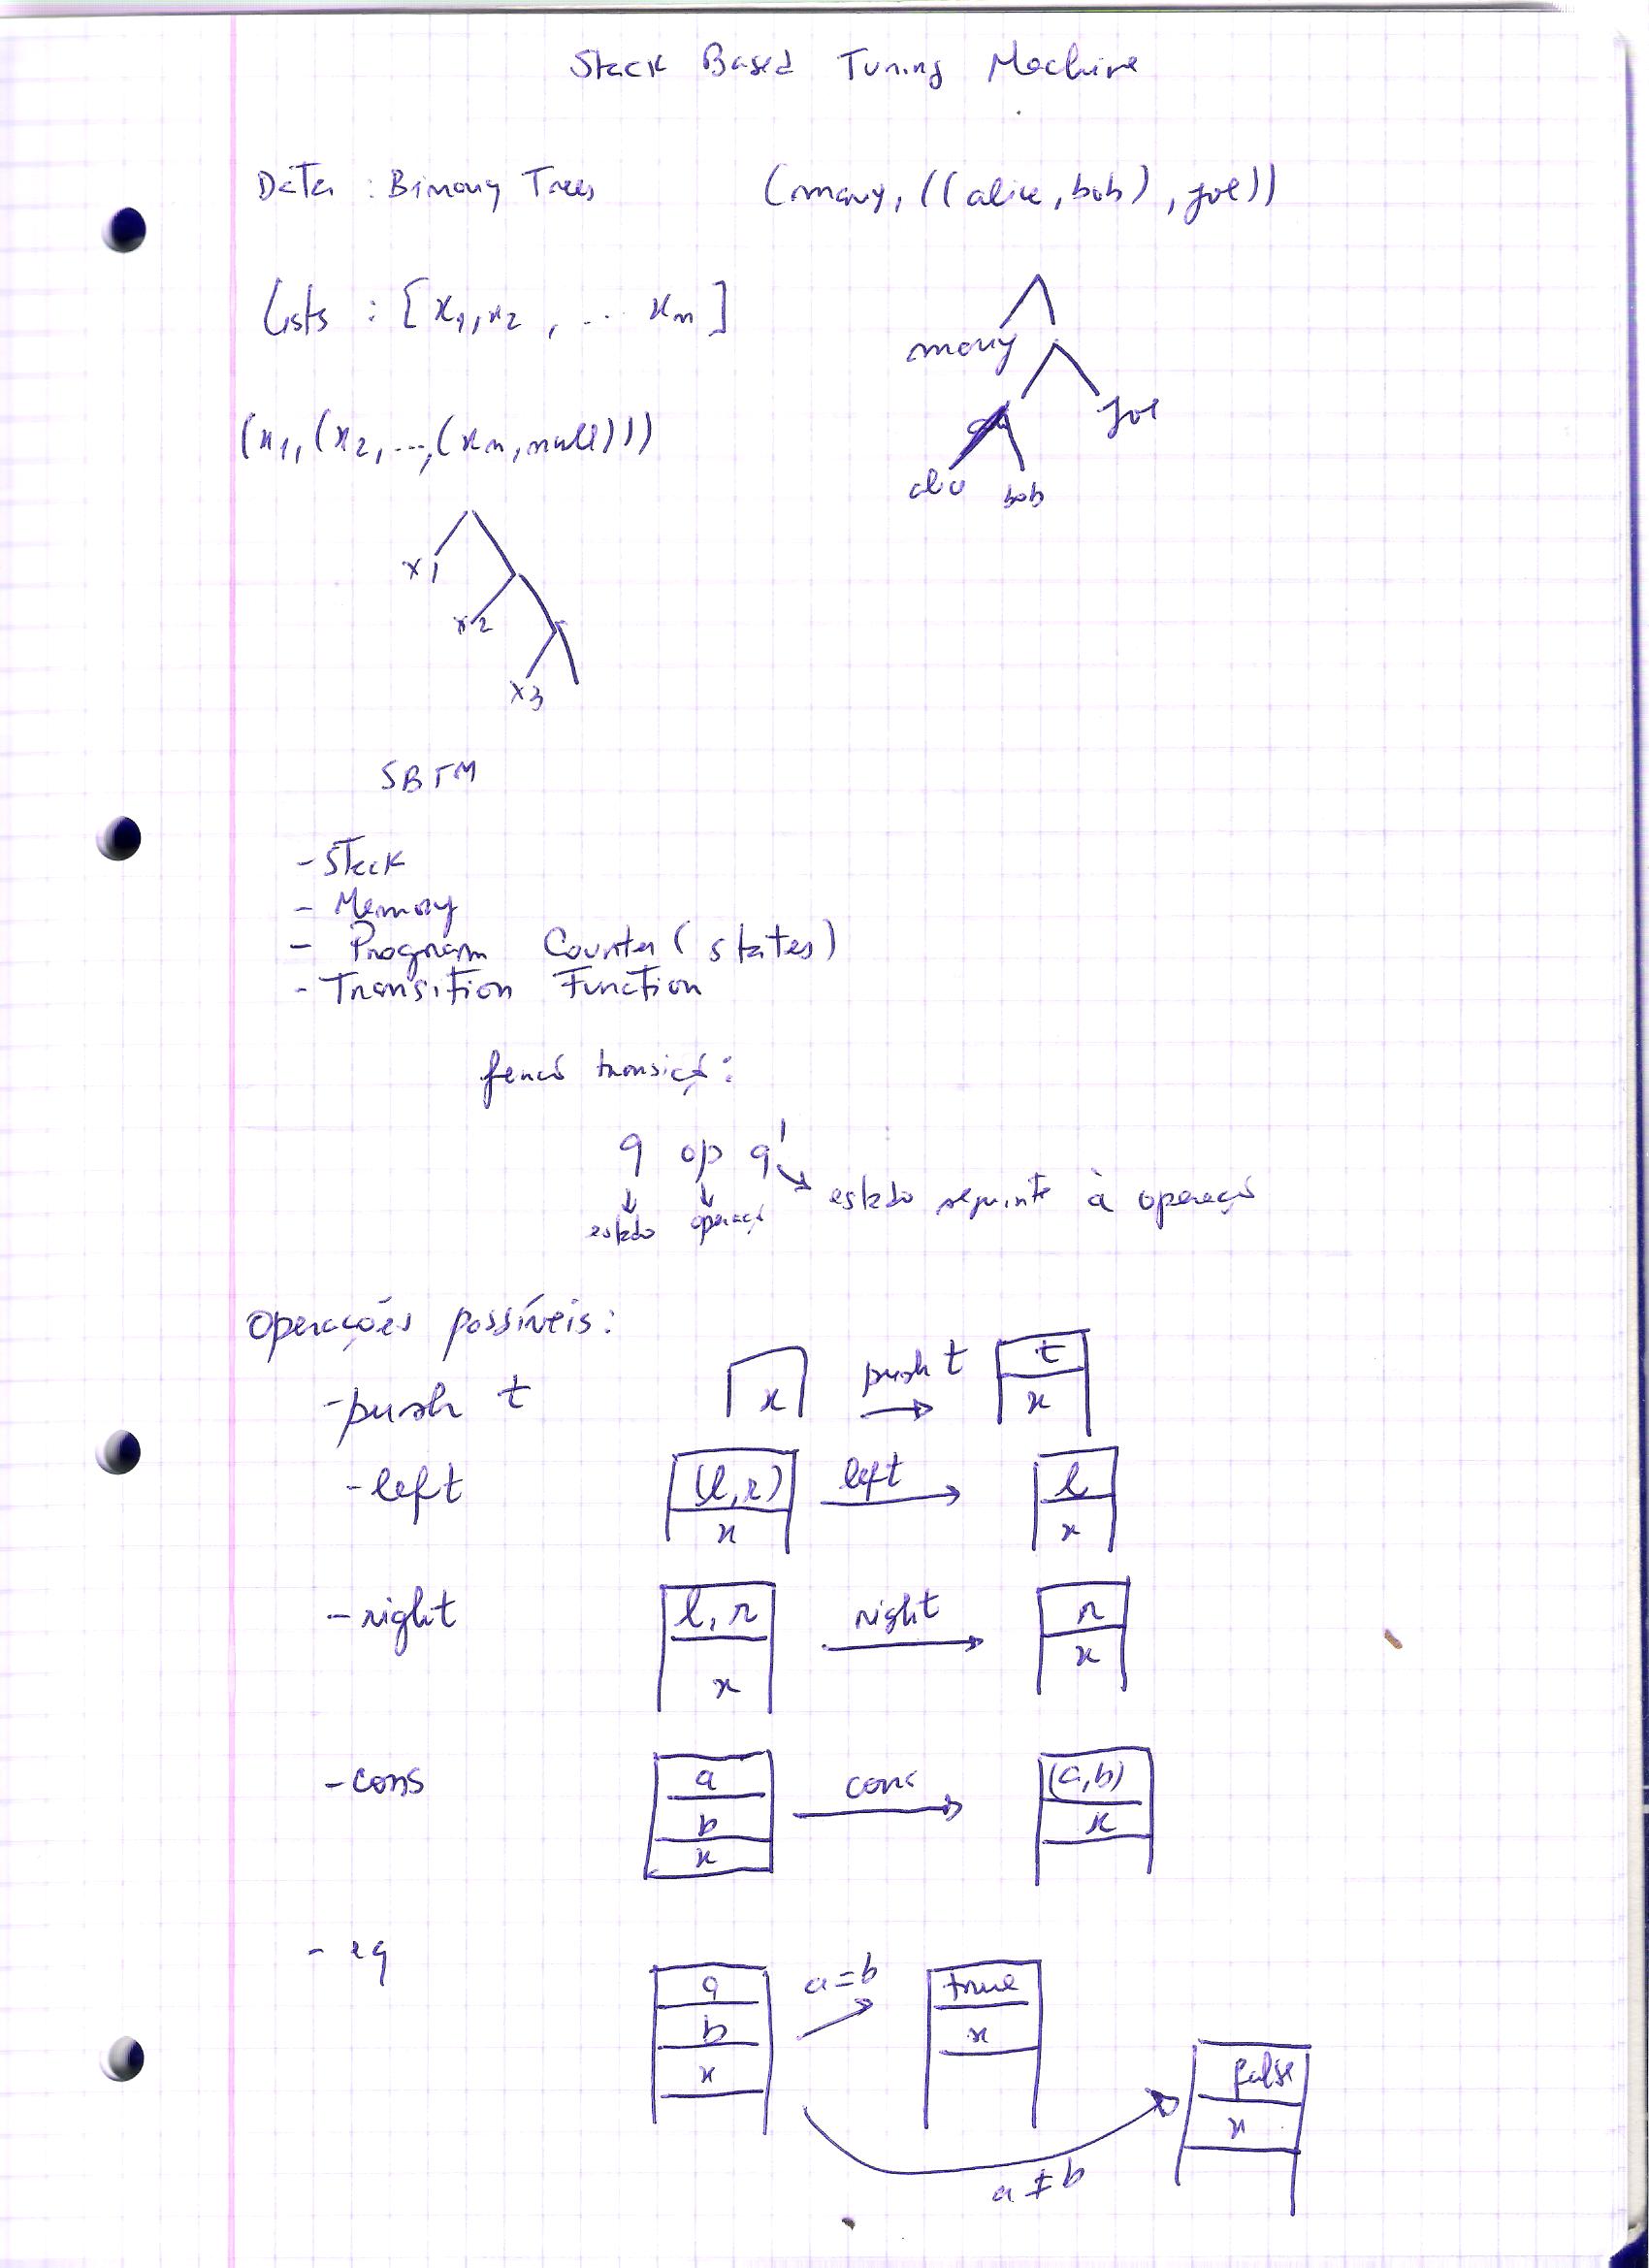 Stack Based Turing Machine
Data : Binary Trees (mary, ((alice, bob), joe))
Lists : [x1, x2, ... xn]
mary
joe
(x1, (x2, ..., (xn, null)))
alice bob
x1
x2
x3
SBTM
- Stack
- Memory
- Program Counter (states)
- Transition Function
transição:
q op q'
estado operação estado seguinte à operação
Operações possíveis:
- push t x push t t x
- left (l, r) x left l x
- right l, r x right r x
- cons a b x cons (a, b) x
- eq a b x a = b true x
false x
a ≠ b